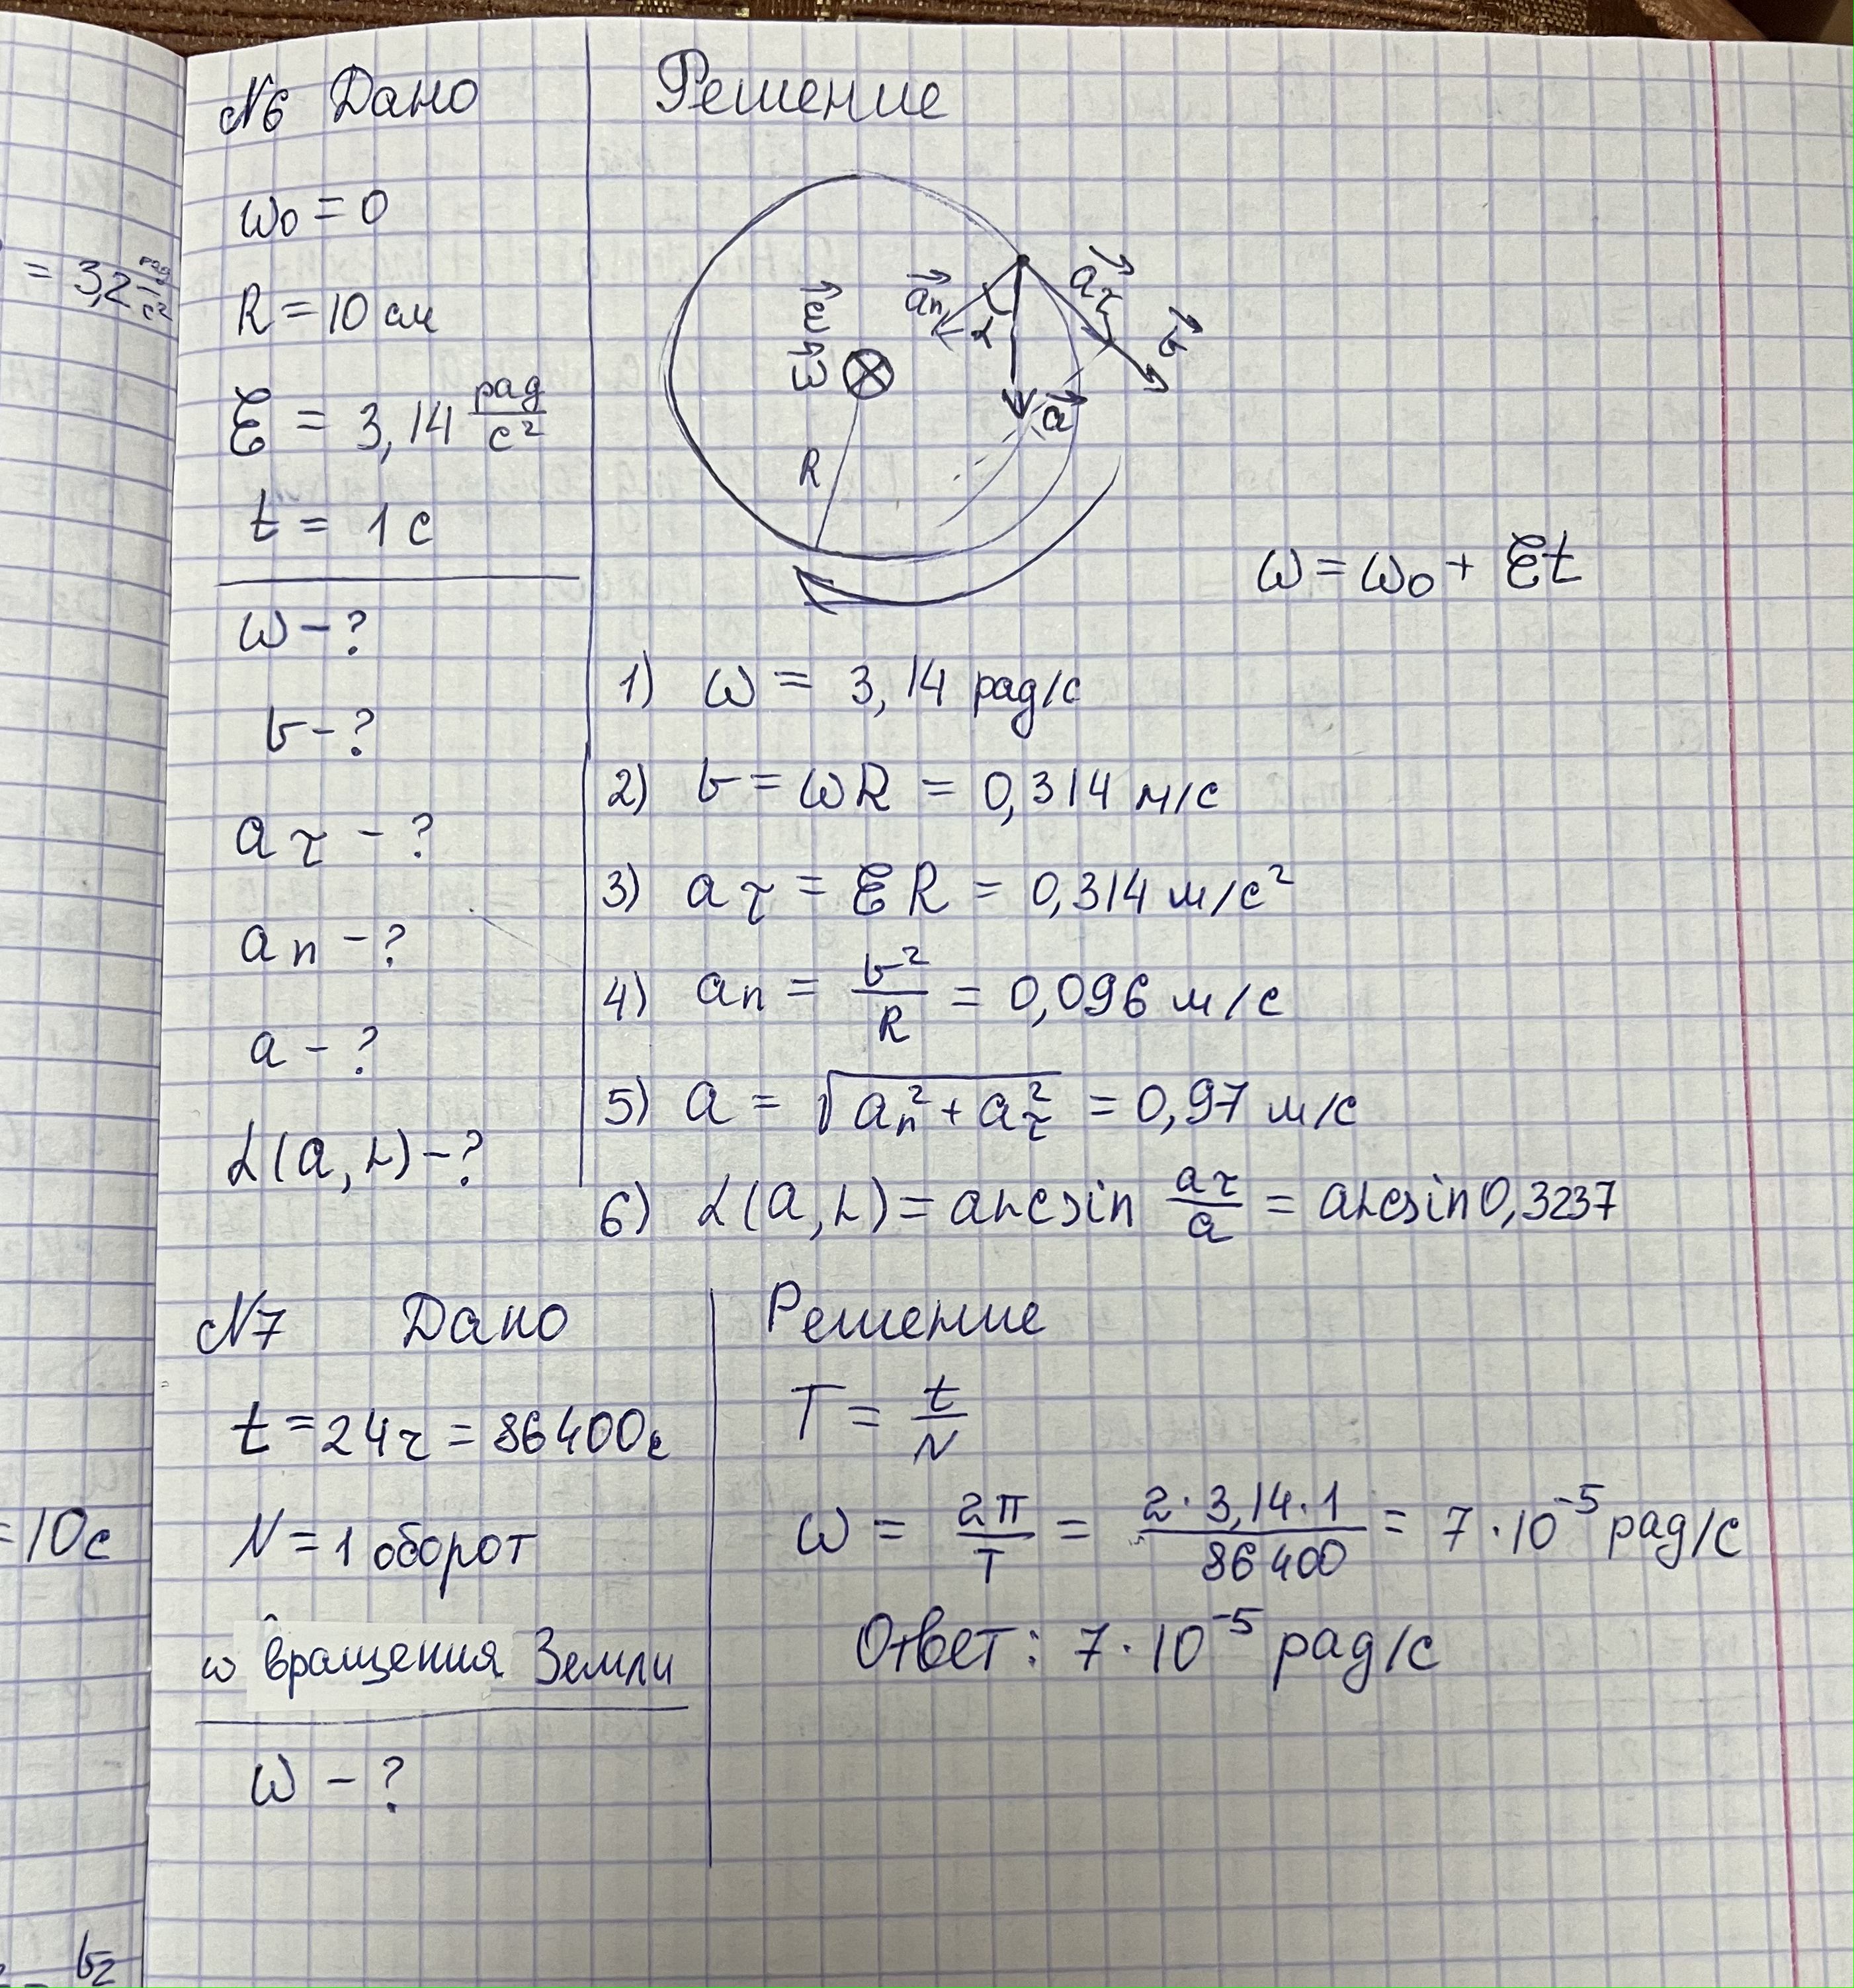 = 3,2 рад/с²
=10с
v₂
N6 Дано
ω₀ = 0
R = 10 см
ε = 3,14 рад/с²
t = 1 с
ω – ?
v – ?
aτ – ?
an – ?
a – ?
α(a, r) – ?
Решение
ε⃗
ω⃗
R
a⃗n
α
a⃗τ
v⃗
a⃗
ω = ω₀ + εt
1) ω = 3,14 рад/с
2) v = ωR = 0,314 м/с
3) aτ = εR = 0,314 м/с²
4) an = v²/R = 0,096 м/с
5) a = √(an² + aτ²) = 0,97 м/с
6) α(a, r) = arcsin aτ/a = arcsin 0,3237
N7 Дано
t = 24ч = 86400с
N = 1 оборот
ω вращения Земли
ω – ?
Решение
T = t/N
ω = 2π/T = 2·3,14·1/86400 = 7·10⁻⁵ рад/с
Ответ: 7·10⁻⁵ рад/с